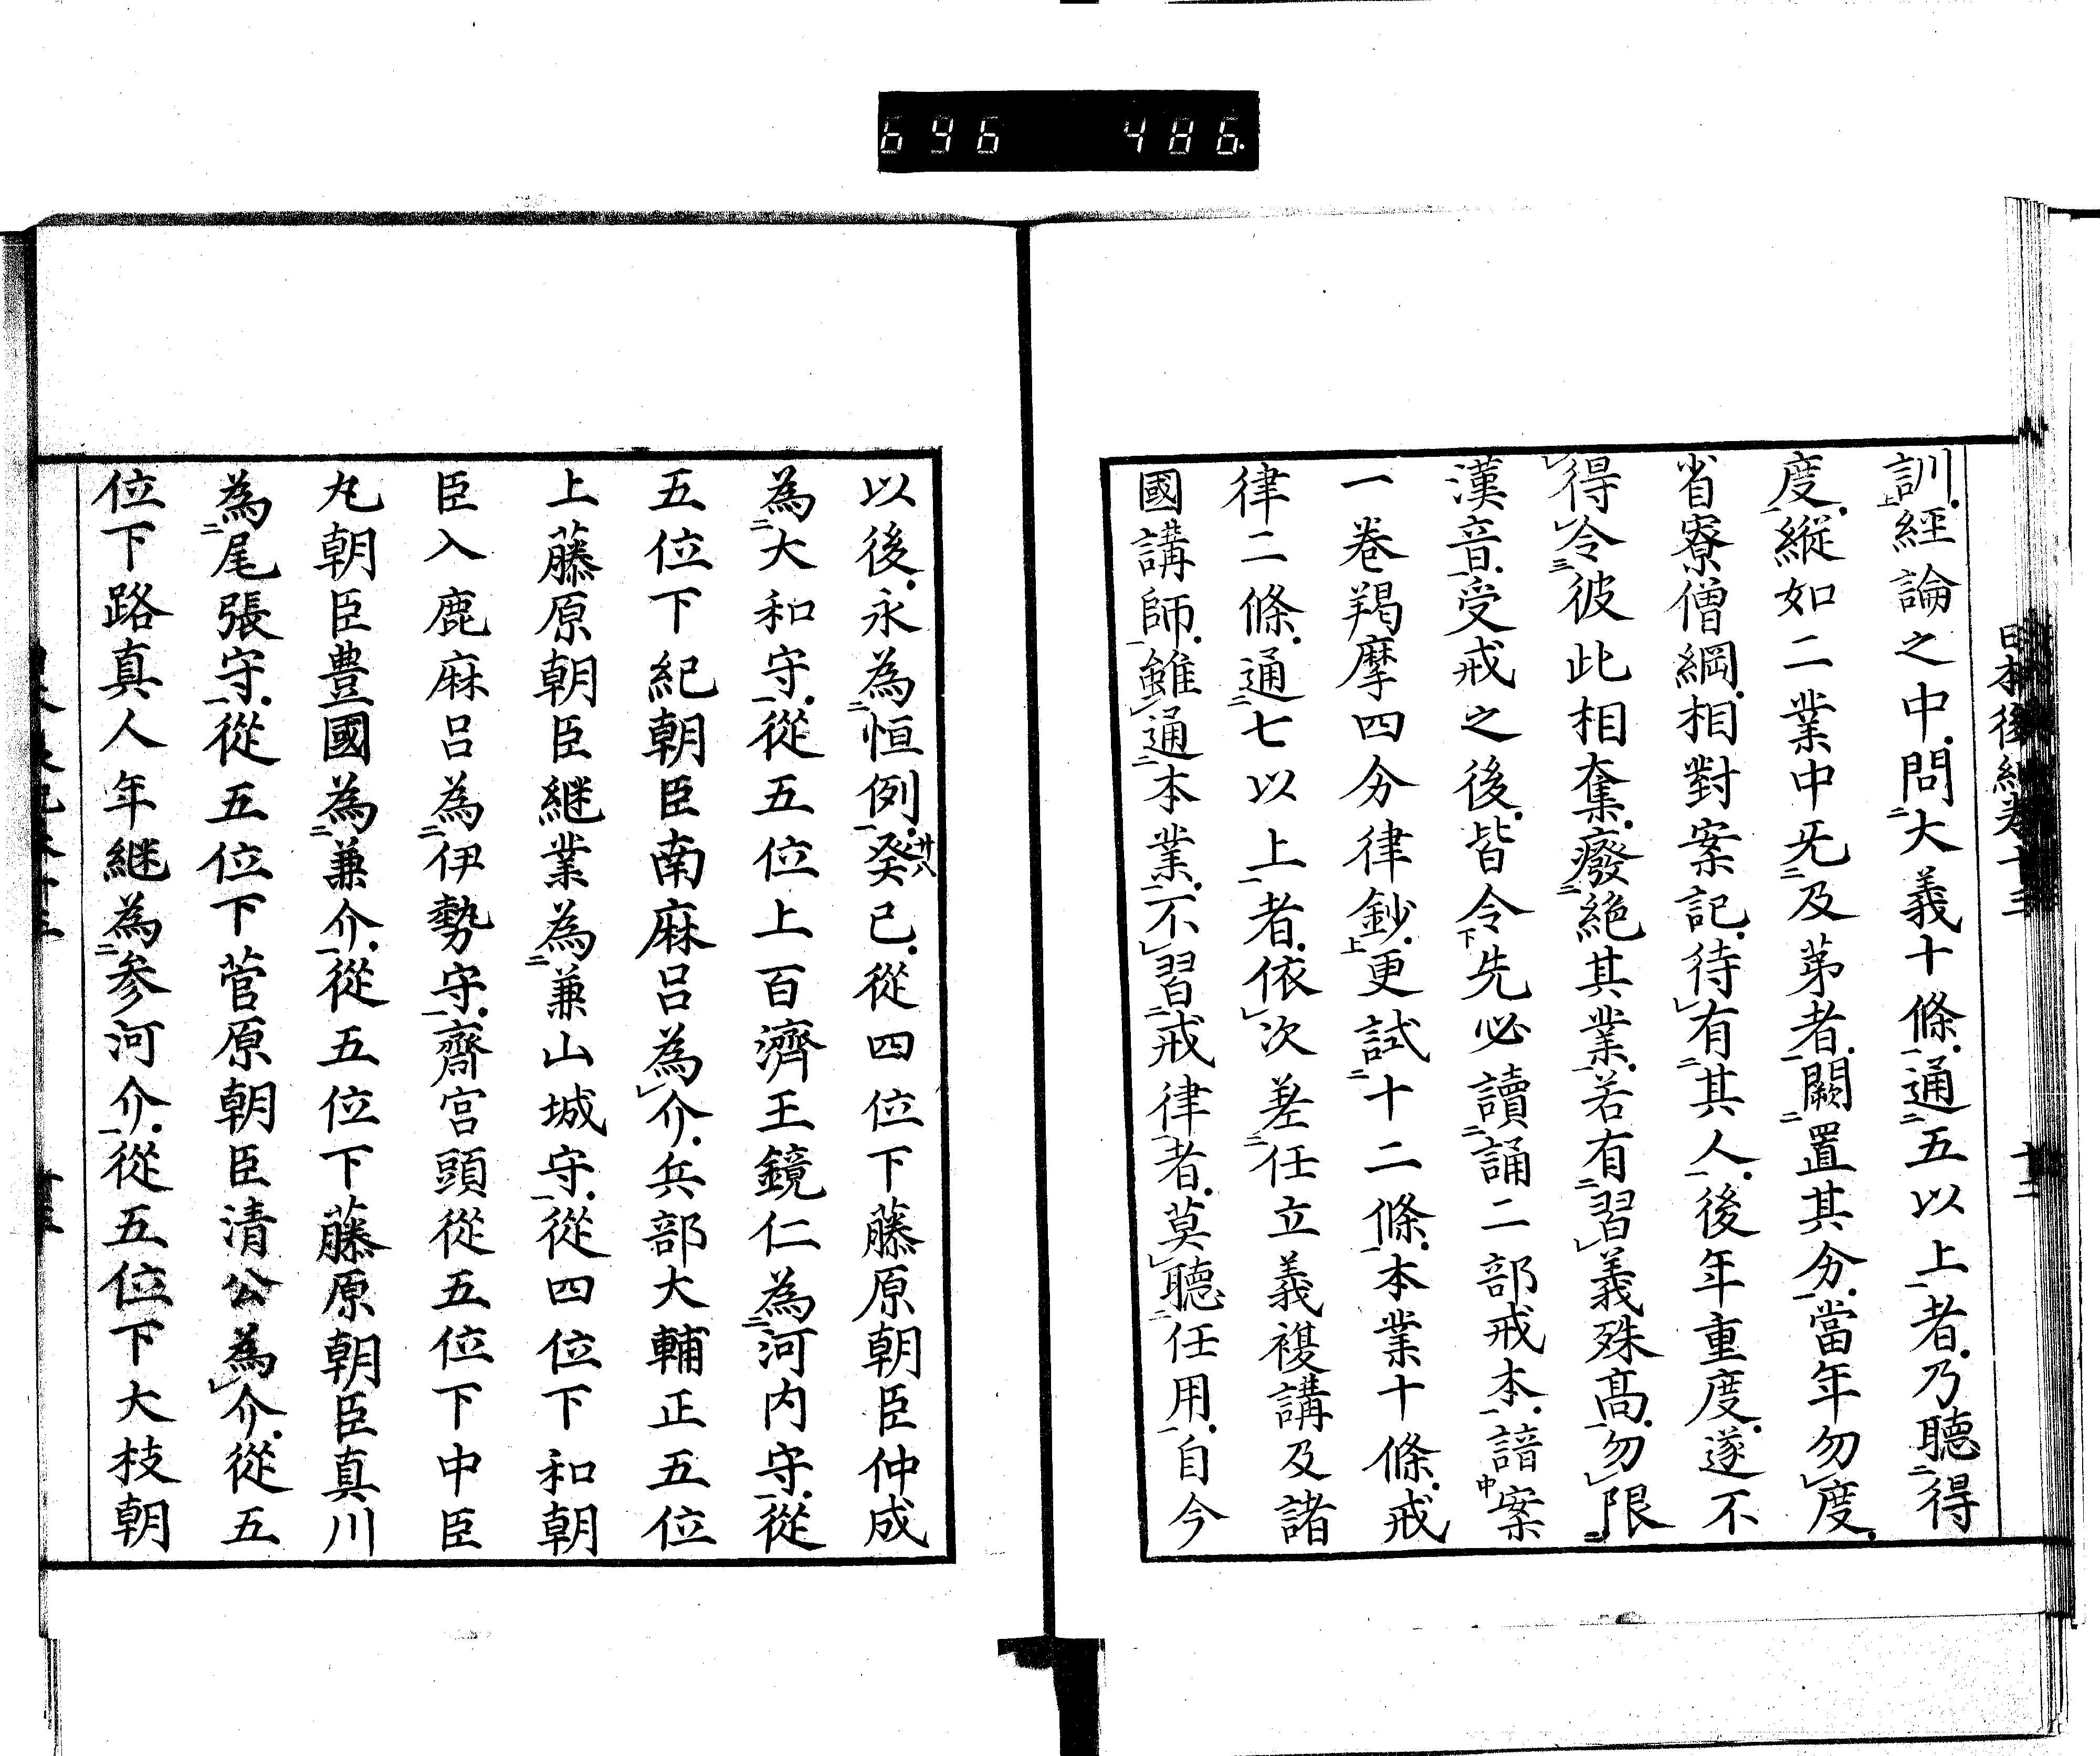 696 486
日本後紀卷十三 十二
訓經論之中問大義十條通五以上者乃聽得
度縱如二業中无及苐者闕置其分當年勿度
省寮僧綱相對案記待有其人後年重度遂不
得令彼此相奪廢絶其業若有習義殊髙勿限
漢音受戒之後皆令先必讀誦二部戒本諳案
一卷羯摩四分律鈔更試十二條本業十條戒
律二條通七以上者依次差任立義複講及諸
國講師雖通本業不習戒律者莫聽任用自今
以後永為恒例癸巳從四位下藤原朝臣仲成
廿八
為大和守從五位上百濟王鏡仁為河内守從
五位下紀朝臣南麻呂為介兵部大輔正五位
上藤原朝臣継業為兼山城守從四位下和朝
臣入鹿麻呂為伊勢守齋宮頭從五位下中臣
丸朝臣豊國為兼介從五位下藤原朝臣真川
為尾張守從五位下菅原朝臣清公為介從五
位下路真人年継為参河介從五位下大枝朝